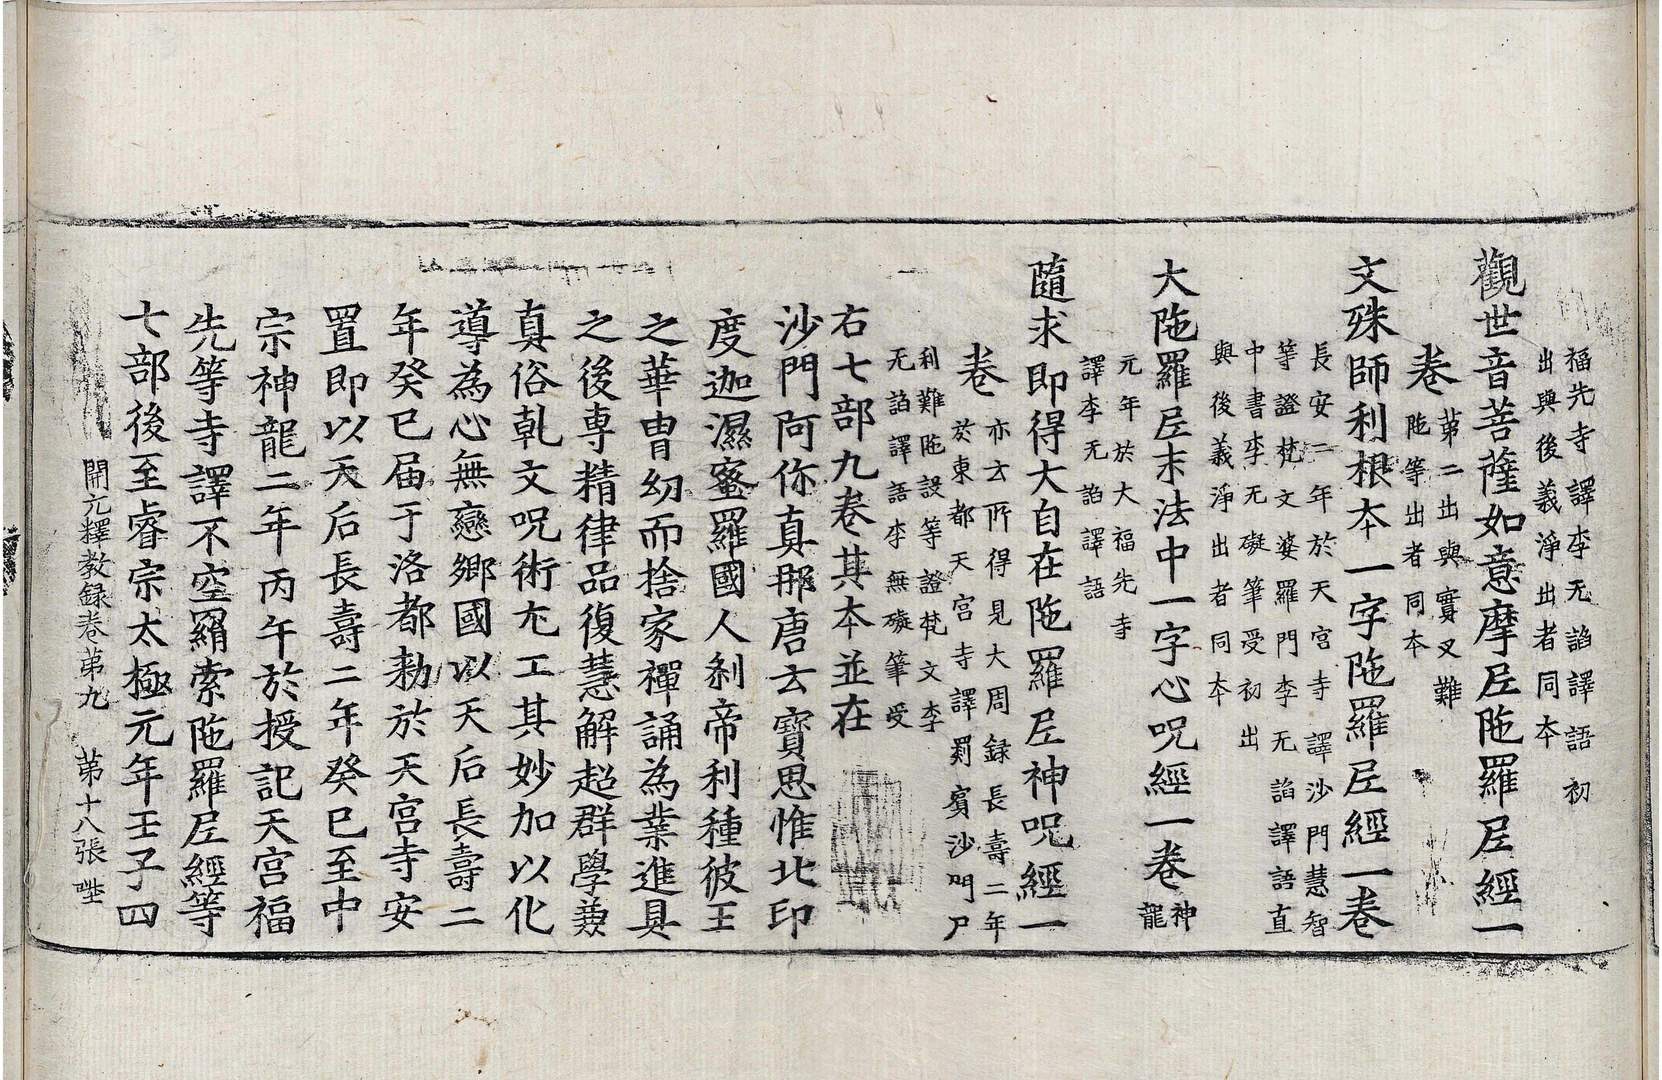 福先寺譯李无諂譯語初
出與後義淨出者同本
觀世音菩薩如意摩尼陁羅尼經一
卷
第二出與實叉難
陁等出者同本
文殊師利根本一字陁羅尼經一卷
長安二年於天宮寺譯沙門慧智
等證梵文婆羅門李无諂譯語直
中書李无礙筆受初出
與後義淨出者同本
大陁羅尼末法中一字心呪經一卷
神
龍
元年於大福先寺
譯李无諂譯語
隨求即得大自在陁羅尼神呪經一
卷
亦云所得見大周録長壽二年
於東都天宮寺譯罽賓沙門尸
利難陁設等證梵文李
无諂譯語李無礙筆受
右七部九卷其本並在
沙門阿你真那唐云寶思惟北印
度迦濕蜜羅國人剎帝利種彼王
之華胄幼而捨家禪誦為業進具
之後專精律品復慧解超群學兼
真俗乹文呪術尤工其妙加以化
導為心無戀鄉國以天后長壽二
年癸巳届于洛都勑於天宮寺安
置即以天后長壽二年癸巳至中
宗神龍二年丙午於授記天宮福
先等寺譯不空羂索陁羅尼經等
七部後至睿宗太極元年壬子四
開元釋教録卷第九 第十八張